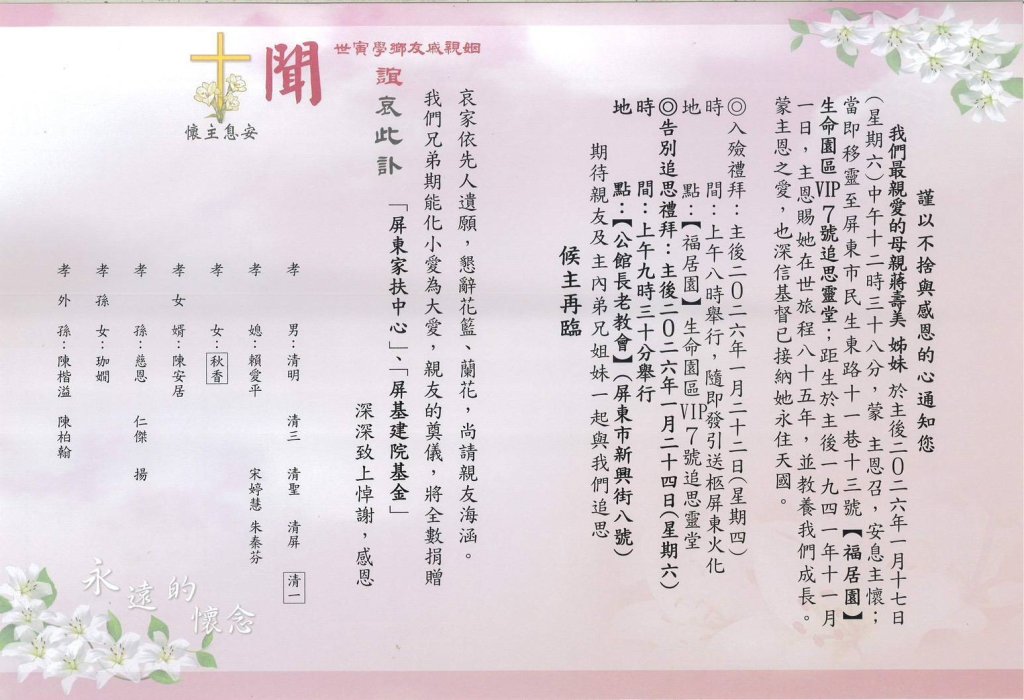 謹以不捨與感恩的心通知您
我們最親愛的母親蔣壽美 姊妹 於主後二０二六年一月十七日
(星期六)中午十二時三十八分，蒙 主恩召，安息主懷；
當即移靈至屏東市民生東路十一巷十三號【福居園】
生命園區VIP7號追思靈堂；距生於主後一九四一年十一月
一日，主恩賜她在世旅程八十五年，並教養我們成長。
蒙主恩之愛，也深信基督已接納她永住天國。
◎入殮禮拜：主後二０二六年一月二十二日(星期四)
時　　間：上午八時舉行，隨即發引送柩屏東火化
地　　點：【福居園】生命園區VIP7號追思靈堂
◎告別追思禮拜：主後二０二六年一月二十四日(星期六)
時　　間：上午九時三十分舉行
地　　點：【公館長老教會】(屏東市新興街八號)
期待親友及主內弟兄姐妹一起與我們追思
候主再臨
哀家依先人遺願，懇辭花籃、蘭花，尚請親友海涵。
我們兄弟期能化小愛為大愛，親友的奠儀，將全數捐贈
「屏東家扶中心」、「屏基建院基金」
深深致上悼謝，感恩
姻親戚友鄉學寅世
誼
哀此訃
聞
安息主懷
孝　　男：清明 清三 清聖 清屏 清一
孝　　媳：賴愛平 宋婷慧 朱秦芬
孝　　女：秋香
孝 女 婿：陳安居
孝　　孫：慈恩 仁傑 揚
孝 孫 女：珈嫺
孝 外 孫：陳楷溢 陳柏翰
永遠的
懷念